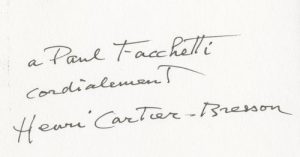 a Paul Facchetti
cordialement
Henri Cartier-Bresson